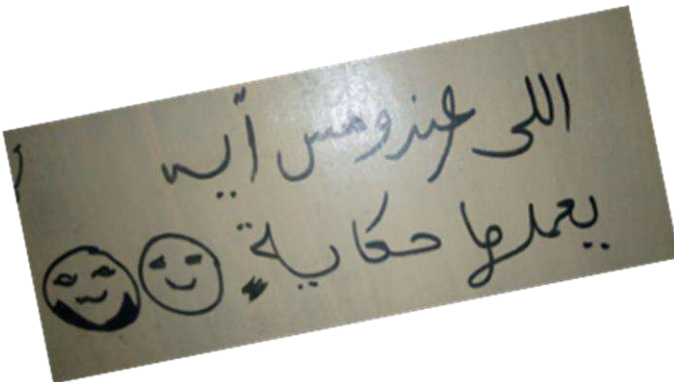 اللى عندو مس أيه
يعملها حكاية